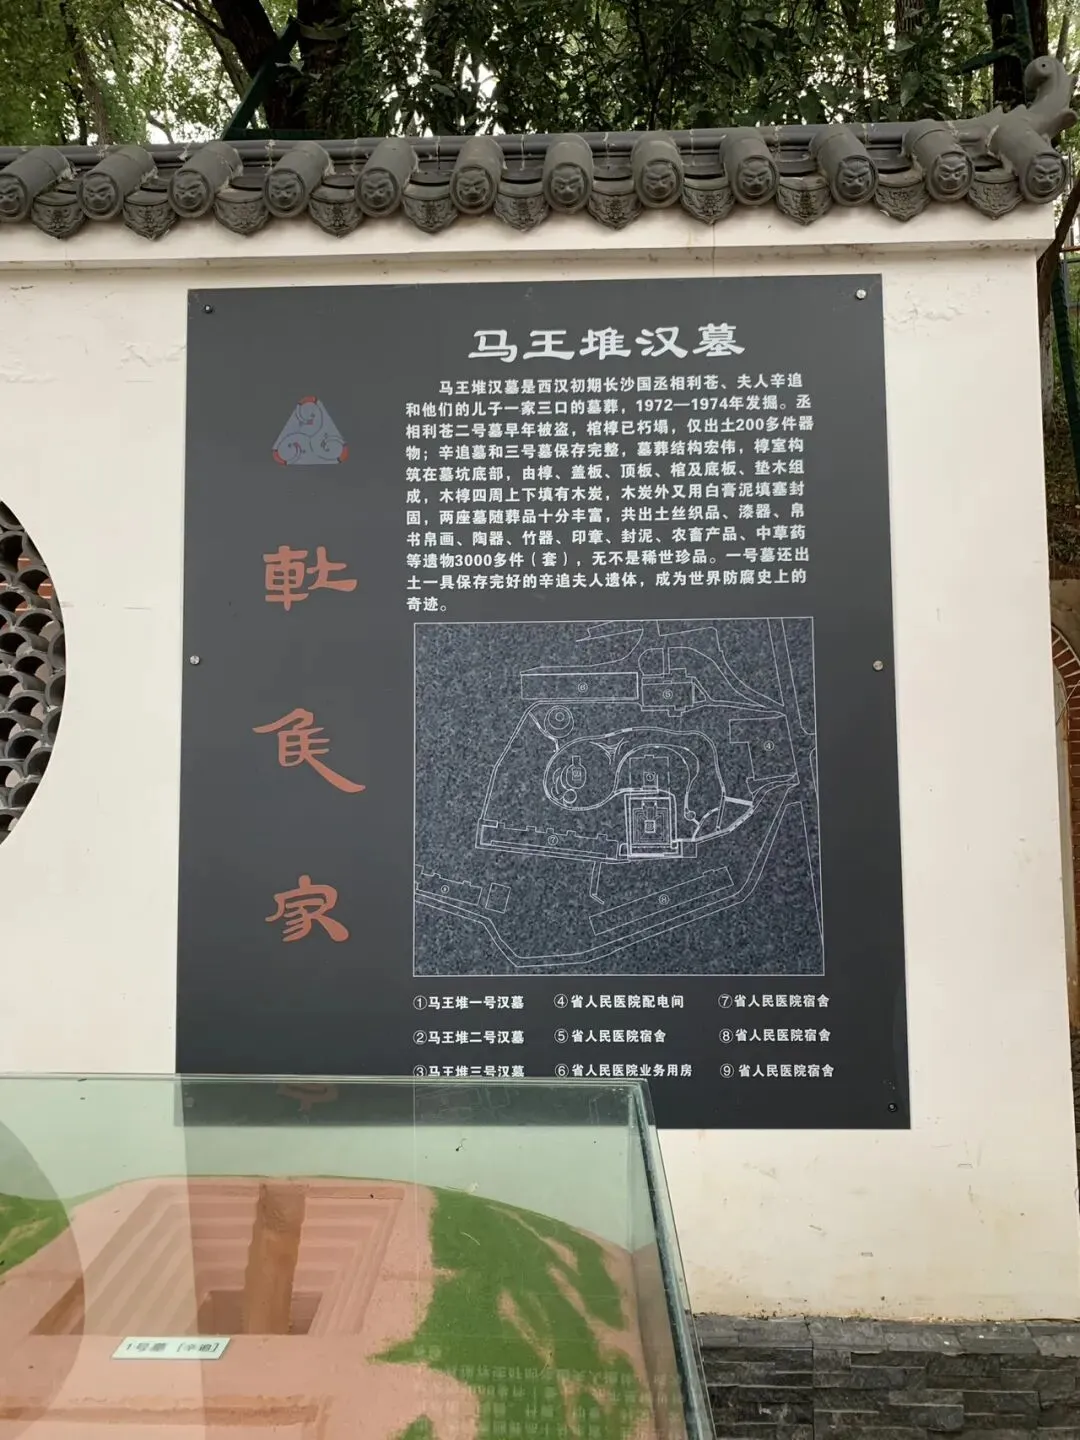 马王堆汉墓
马王堆汉墓是西汉初期长沙国丞相利苍、夫人辛追
和他们的儿子一家三口的墓葬，1972—1974年发掘。丞
相利苍二号墓早年被盗，棺椁已朽塌，仅出土200多件器
物；辛追墓和三号墓保存完整，墓葬结构宏伟，椁室构
筑在墓坑底部，由椁、盖板、顶板、棺及底板、垫木组
成，木椁四周上下填有木炭，木炭外又用白膏泥填塞封
固，两座墓随葬品十分丰富，共出土丝织品、漆器、帛
书帛画、陶器、竹器、印章、封泥、农畜产品、中草药
等遗物3000多件（套），无不是稀世珍品。一号墓还出
土一具保存完好的辛追夫人遗体，成为世界防腐史上的
奇迹。
軑
侯
家
⑥
⑤
④
⑦
⑧
⑨
①马王堆一号汉墓 ④省人民医院配电间 ⑦省人民医院宿舍
②马王堆二号汉墓 ⑤省人民医院宿舍 ⑧省人民医院宿舍
③马王堆三号汉墓 ⑥省人民医院业务用房 ⑨省人民医院宿舍
1号墓［辛追］